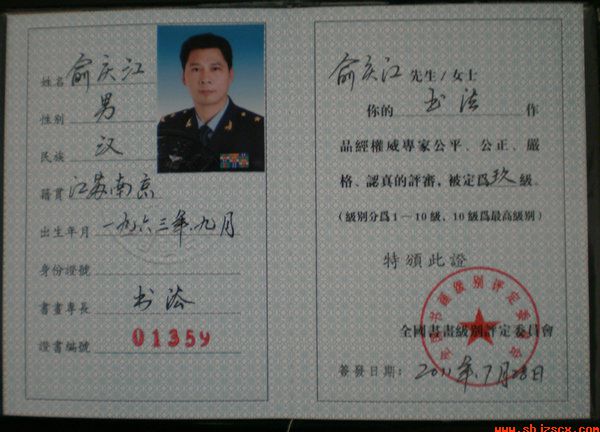 姓名 俞庆江
性别 男
民族 汉
籍貫 江苏南京
出生年月 一九六三年九月
身份證號
書畫專長 书法
證書編號 01359
俞庆江 先生/女士
你的 书法 作
品經權威專家公平、公正、嚴
格、認真的評審，被定爲 玖 級。
(級別分爲1—10級，10級爲最高級別)
特頒此證
全國書畫級別評定委員會
簽發日期：2011年7月28日
www.shjzscx.com